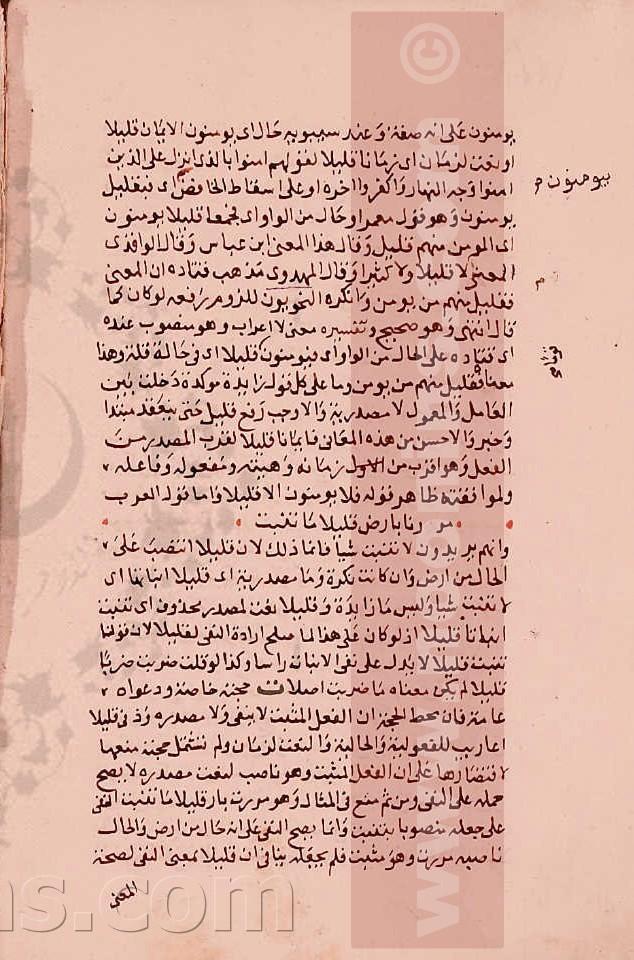 يومنون على انه صفة وعند سيبويه حال اى يومنون الايمان قليلا
او نعت لزمان اى زمانا قليلا لقولهم امنوا بالذى انزل على الذين
امنوا وجه النهار واكفروا اخره او على اسقاط الخافض اى فبقليل
يومنون وهو قول معمر او حال من الواو اى فجمعا قليلا يومنون
اى المومن منهم قليل وقال هذا المعنى ابن عباس وقال الواقدى
المعنى لا قليلا ولا كثيرا وقال المهدوى مذهب قتاده ان المعنى
فقليل منهم من يومن وانكره النحويون للزوم رفعه لو كان كما
قال انتهى وهو صحيح وتفسيره معنى لا اعراب وهو منصوب عنده
اى قتاده على الحال من الواو اى فيومنون قليلا اى فى حالة قلة وهذا
معناه فقليل منهم من يومن وما على كل قول زايدة موكدة دخلت بين
العامل والمعمول لا مصدرية والا وجب رفع قليل حتى ينعقد مبتدا
وخبر والاحسن من هذه المعانى فايمانا قليلا لقرب المصدر من
الفعل وهو اقرب من الاول زمانه وهيئته ومفعوله وفاعله
ولموافقته ظاهر قوله فلا يومنون الا قليلا واما قول العرب
مررنا بارض قليلا ما تنبت
وانهم يريدون لا تنبت شيا فانما ذلك لان قليلا انتصب على
الحال من ارض وان كانت نكرة وما مصدرية اى قليلا انباتها اى
لا تنبت شيا وليس ما زايدة وقليلا نعت لمصدر محذوف اى تنبت
انباتا قليلا اذ لو كان على هذا لما صلح ارادة النفى لقليلا لان قولنا
تنبت قليلا لا يدل على نفى الانبات راسا وكذا لو قلت ضربت ضربا
قليلا لم يكن معناه ما ضربت اصلا قلت حجته خاصة ودعواه
عامة فان محط الحجة ان الفعل المثبت لا ينفى ولا مصدره وذ فى قليلا
اعاريب للمفعولية والحالية والنعت لزمان ولم تشتمل حجته منعها
لاقتصارها على ان الفعل المثبت وهو ناصب لنعت مصدره لا يصح
حمله على النفى ومن ثم منع فى المثال وهو مررت بارض قليلا ما تنبت النفى
على جعله منصوبا بتنبت وانما يصح النفى على انه حال من ارض والحال
ناصبه مررت وهو مثبت فلم يجعله ينافى ان قليلا بمعنى النفى لصحة
المعنى
بيومنون م
م